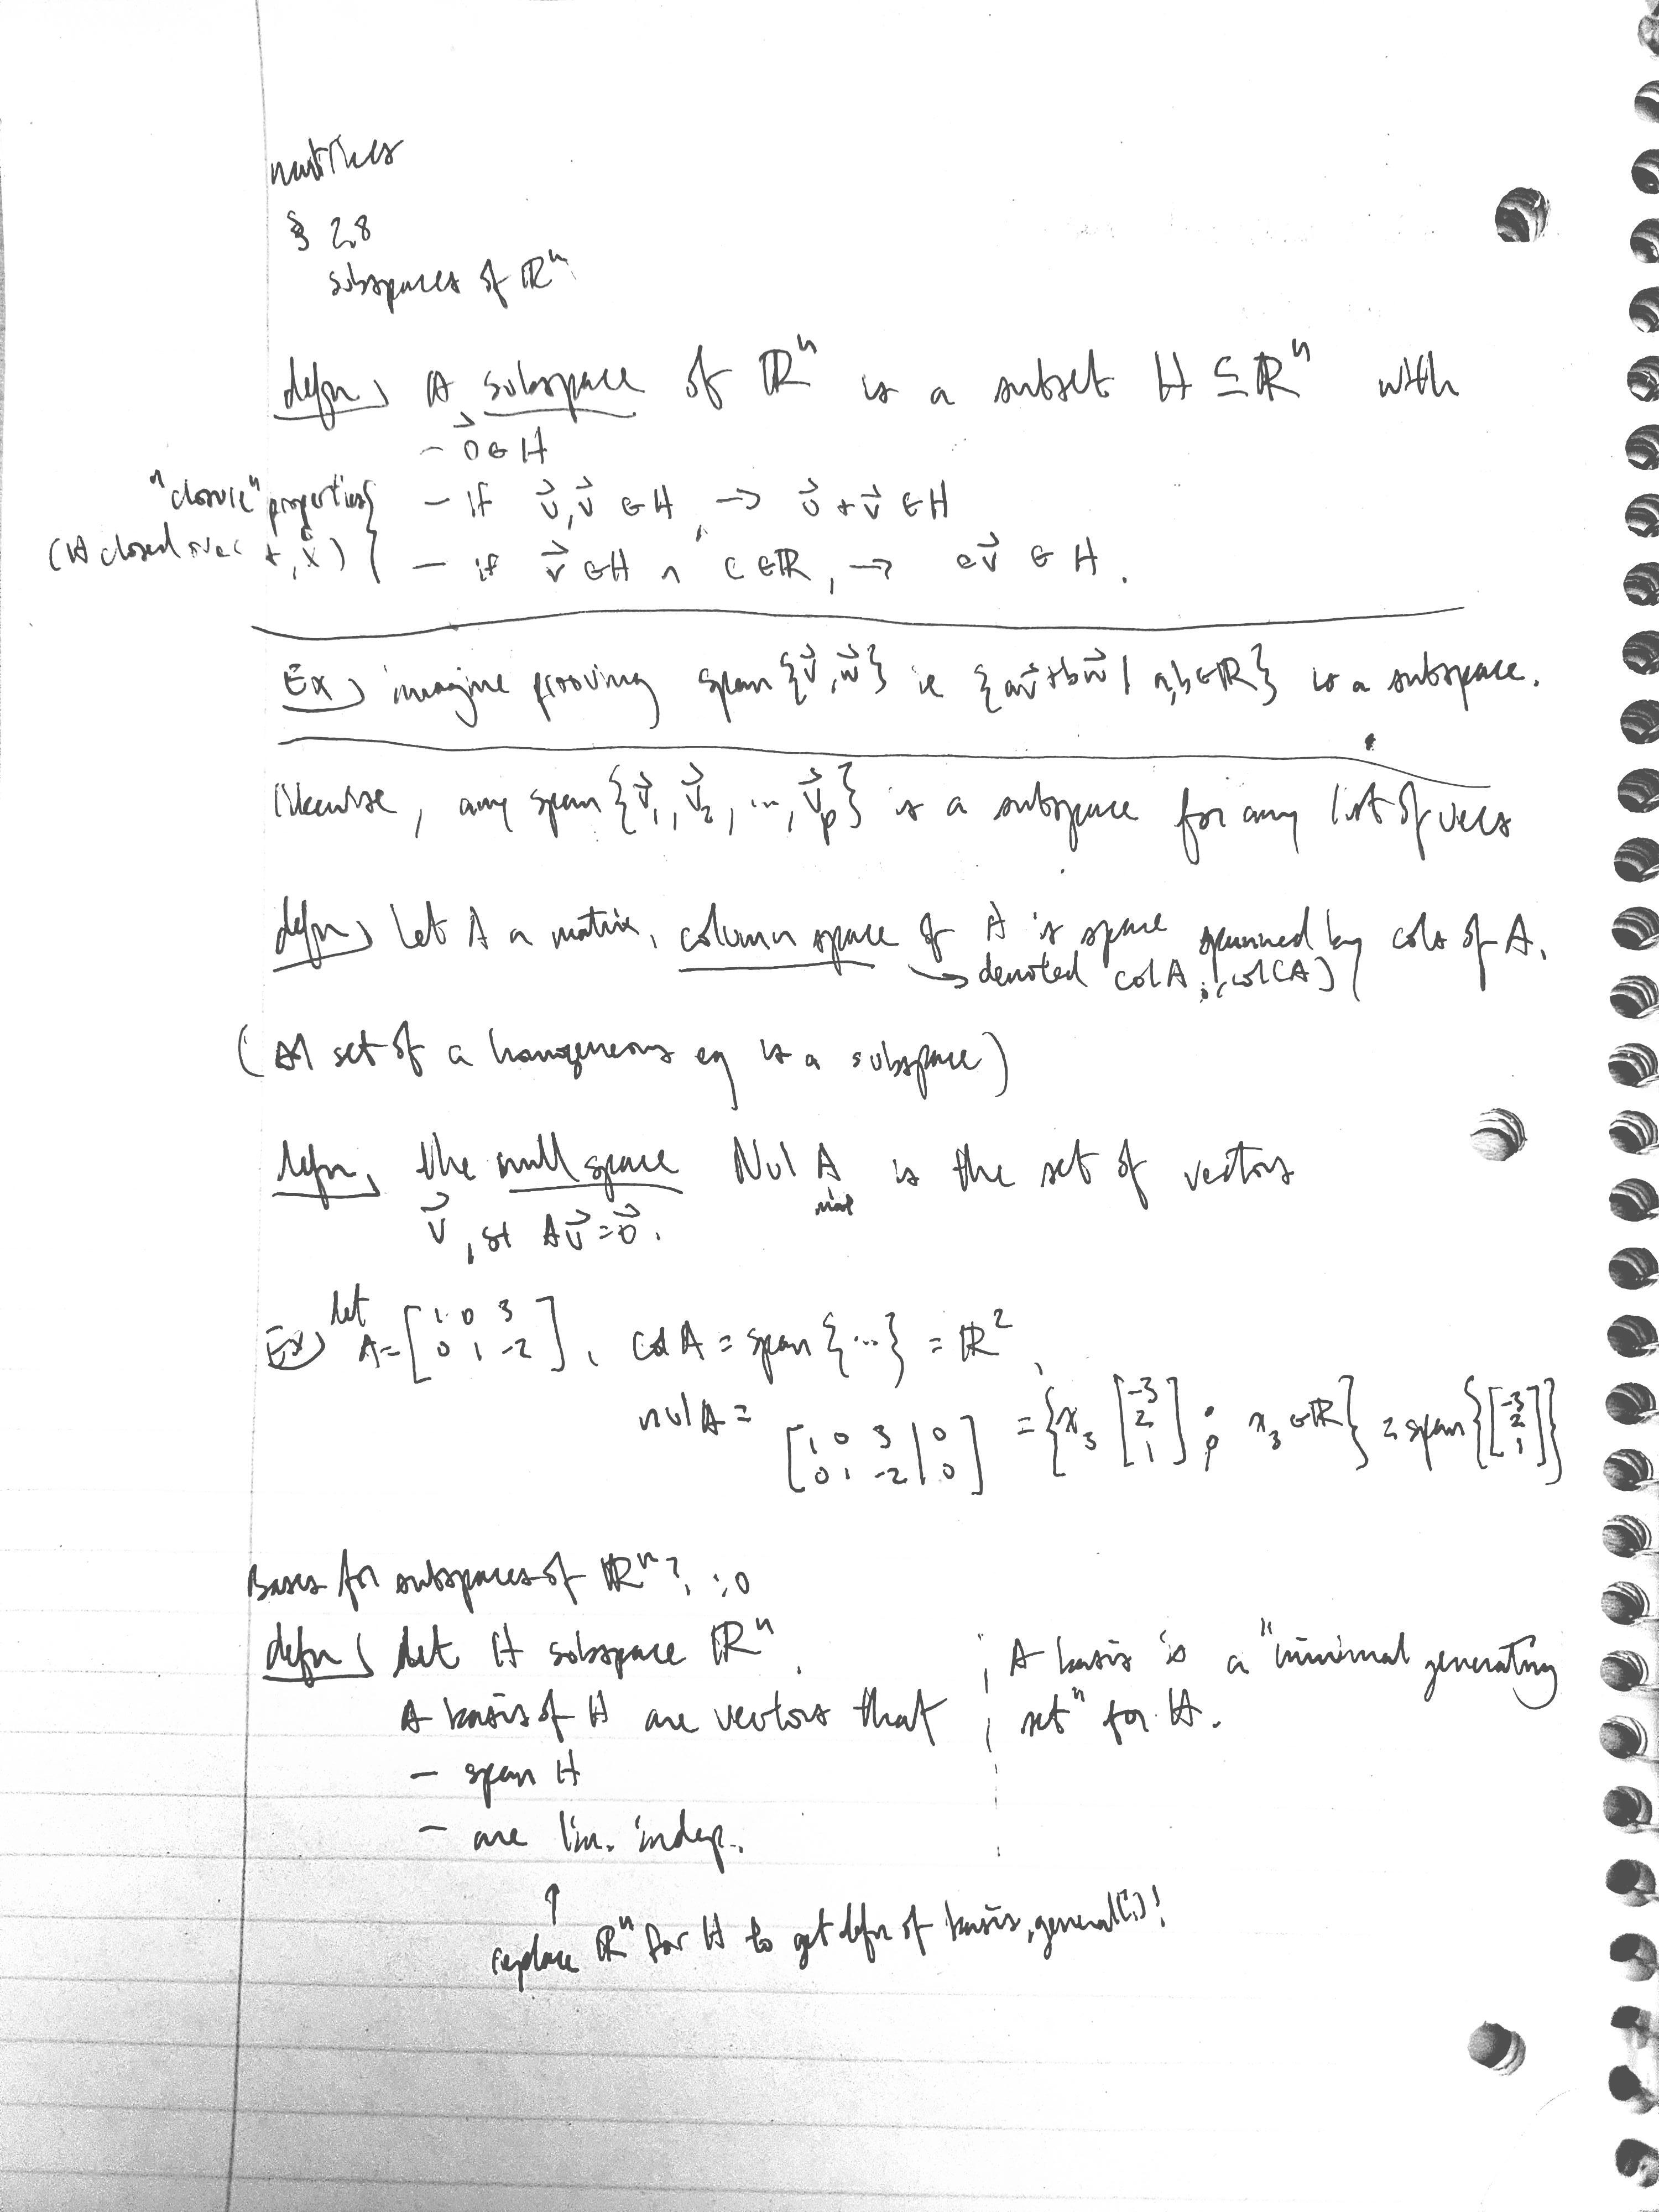 § 2.8
subspaces of ℝⁿ
defn) A subspace of ℝⁿ is a subset H ⊆ ℝⁿ with
- 0⃗ ∈ H
"closure" properties - if u⃗, v⃗ ∈ H, → u⃗ + v⃗ ∈ H
(H closed over +, ×) - if v⃗ ∈ H ∧ c ∈ ℝ, → cv⃗ ∈ H.
Ex) imagine prooving span {v⃗, w⃗} ie {av⃗+bw⃗ | a,b∈ℝ} is a subspace.
likewise, any span {v⃗₁, v⃗₂, ..., v⃗ₚ} is a subspace for any list of vecs
defn) let A a matrix, column space of A is space spanned by cols of A.
→ denoted col A, col(A)
set of a homogeneous eq is a subspace)
defn, the null space Nul A is the set of vectors
v⃗, st Av⃗ = 0⃗.
Ex) let A = [1 0 3
0 1 -2], col A = span {...} = ℝ²,
nul A = [1 0 3 | 0
0 1 -2 | 0] = {x₃ [-3 2 1] : x₃ ∈ ℝ} = span {[-3 2 1]}
Bases for subspaces of ℝⁿ? :0
defn) let H subspace ℝⁿ.
A basis of H are vectors that
- span H
- are lin. indep.
A basis is a "minimal generating
set" for H.
↑
replace ℝⁿ for H to get defn of basis, general(?)!